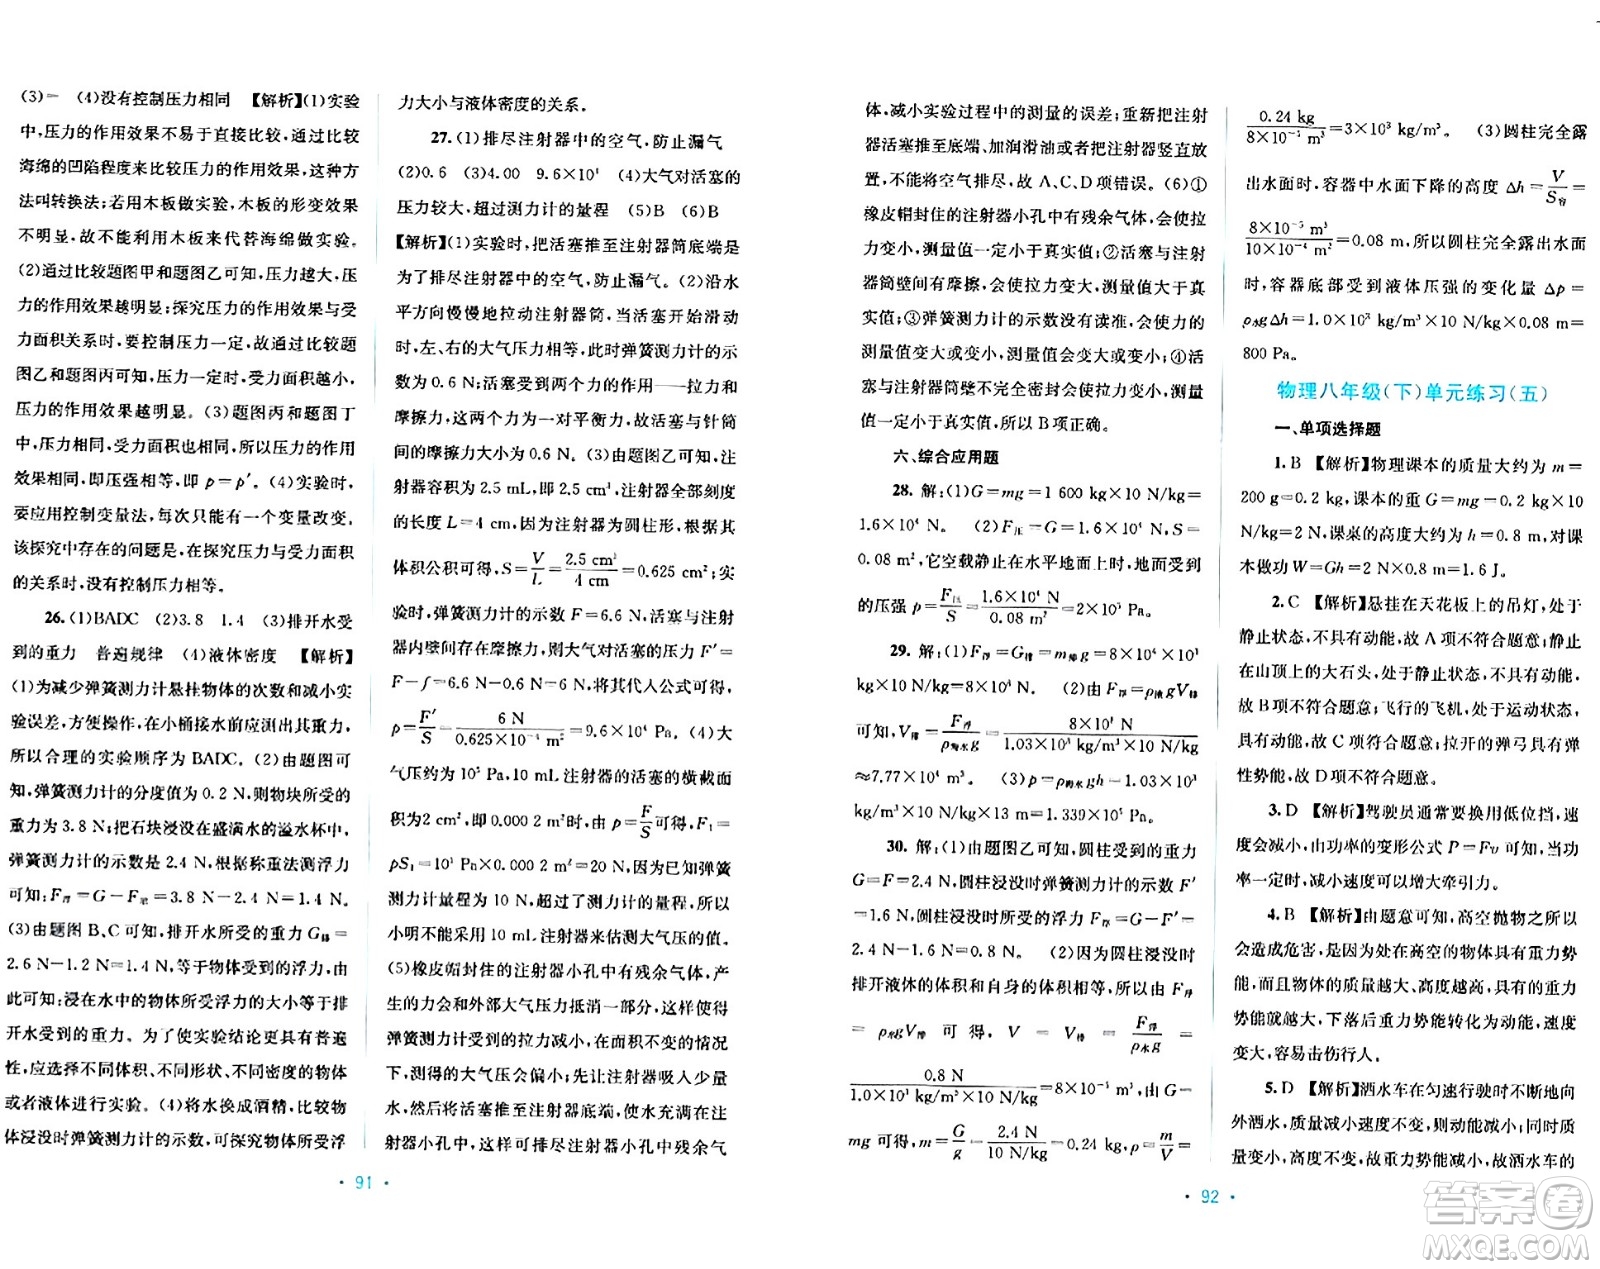 (3)= (4)没有控制压力相同 【解析】(1)实验
中,压力的作用效果不易于直接比较,通过比较
海绵的凹陷程度来比较压力的作用效果,这种方
法叫转换法;若用木板做实验,木板的形变效果
不明显,故不能利用木板来代替海绵做实验。
(2)通过比较题图甲和题图乙可知,压力越大,压
力的作用效果越明显;探究压力的作用效果与受
力面积关系时,要控制压力一定,故通过比较题
图乙和题图丙可知,压力一定时,受力面积越小,
压力的作用效果越明显。(3)题图丙和题图丁
中,压力相同,受力面积也相同,所以压力的作用
效果相同,即压强相同,故 p=p′。(4)实验时,
要应用控制变量法,每次只能有一个变量改变。
该探究中存在的问题是,在探究压力与受力面积
的关系时,没有控制压力相等。
26.(1)BADC (2)3.8 1.4 (3)排开水受
到的重力 普遍规律 (4)液体密度 【解析】
(1)为减少弹簧测力计悬挂物体的次数和减小实
验误差,方便操作,在小桶接水前应测出其重力,
所以合理的实验顺序为 BADC。(2)由题图可
知,弹簧测力计的分度值为 0.2 N,则物块所受的
重力为 3.8 N;把石块浸没在盛满水的溢水杯中,
弹簧测力计的示数是 2.4 N,根据称重法测浮力
可知:F浮=G-F示=3.8 N-2.4 N=1.4 N。
(3)由题图 B、C 可知,排开水所受的重力 G排=
2.6 N-1.2 N=1.4 N=物体受到的浮力,由
此可知:浸在水中的物体所受浮力的大小等于排
开水受到的重力。为了使实验结论更具有普遍
性,应选择不同体积、不同形状、不同密度的物体
或者液体进行实验。(4)将水换成酒精,比较物
体浸没时弹簧测力计的示数,可探究物体所受浮
力大小与液体密度的关系。
27.(1)排尽注射器中的空气,防止漏气
(2)0.6 (3)4.00 9.6×10⁴ (4)大气对活塞的
压力较大,超过测力计的量程 (5)B (6)B
【解析】(1)实验时,把活塞推至注射器筒底端是
为了排尽注射器中的空气,防止漏气。(2)沿水
平方向慢慢地拉动注射器筒,当活塞开始滑动
时,左、右的大气压力相等,此时弹簧测力计的示
数为 0.6 N;活塞受到两个力的作用——拉力和
摩擦力,这两个力为一对平衡力,故活塞与针筒
间的摩擦力大小为 0.6 N。(3)由题图乙可知,注
射器容积为 2.5 mL,即 2.5 cm³,注射器全部刻度
的长度 L=4 cm,因为注射器为圆柱形,根据其
体积公积可得,S=V/L=2.5 cm³/4 cm=0.625 cm²;实
验时,弹簧测力计的示数为 F=6.6 N,由于注射
器内存在摩擦力,则大气对活塞的压力 F′=
F-f=6.6 N-0.6 N=6 N,将其代人公式可得,
p=F′/S=6 N/0.625×10⁻⁴ m²=9.6×10⁴ Pa。(4)大
气压约为 10⁵ Pa,10 mL 注射器的活塞的横截面
积为2 cm²,即 0.000 2 m²,由 p=F/S可得,F₁=
pS₁=10⁵ Pa×0.000 2 m²=20 N,因为已知弹
簧测力计量程为 10 N,超过了测力计的量程,所以
小明不能采用 10 mL 注射器来估测大气压的值。
(5)橡皮帽封住的注射器小孔中有残余气体,产
生的力会和外部大气压力抵消一部分,这样使得
弹簧测力计的拉力减小,在面积不变的情况
下,测得的大气压会偏小;先让注射器吸人少量
水,然后将活塞推至注射器底端,使水充满
注射器小孔中,这样可排尽注射器小孔中残余气
· 91 ·
体,减小实验过程中的测量的误差;重新把注射
器活塞推至底端、加润滑油或者把注射器竖直放
置,不能将空气排尽,故 A、C、D 项错误。(6)①
橡皮帽封住的注射器小孔中有残余气体,会使拉
力变小,测量值一定小于真实值;②活塞与注射
器筒壁间有摩擦,会使拉力变大,测量值大于真
实值;③弹簧测力计的示数没有读准,会使拉力
测量值变大或变小,测量值会变大或变小;④活
塞与注射器筒壁不完全密封会使拉力变小,测量
值一定小于真实值,所以 B项正确。
六、综合应用题
28. 解:(1)G=mg=1 600 kg×10 N/kg=
1.6×10⁴ N。 (2)F压=G=1.6×10⁴ N,S=
0.08 m²,它空载静止在水平地面上时,对地面
的压强 p=F压/S=1.6×10⁴ N/0.08 m²=2×10⁵ Pa。
29. 解:(1)F浮=G排=m排g=8×10³×10³
kg×10 N/kg=8×10⁷ N。 (2)由 F浮=ρ液gV排
可知,V排=F浮/ρ海水g=8×10⁷ N/1.03×10³ kg/m³×10 N/kg
≈7.77×10³ m³。 (3)p=ρ海水gh=1.03×
10³ kg/m³×10 N/kg×13 m=1.339×10⁵ Pa。
30. 解:(1)由题图乙可知,圆柱所受的重力
G=F=2.4 N,圆柱浸没时弹簧测力计的示数 F′
=1.6 N,圆柱浸没时所受的浮力 F浮=G-F′=
2.4 N-1.6 N=0.8 N。 (2)因为圆柱浸没时
排开液体的体积和自身的体积相等,所以由 F浮
=ρ水gV排 可得,V=V排=F浮/ρ水g=
0.8 N/1.0×10³ kg/m³×10 N/kg=8×10⁻⁵ m³,由 G=
mg 可得,m=G/g=2.4 N/10 N/kg=0.24 kg,ρ=m/V=
0.24 kg/8×10⁻⁵ m³=3×10³ kg/m³。 (3)圆柱完全露
出水面时,容器中水面下降的高度 Δh=V/S容=
8×10⁻⁵ m³/10×10⁻⁴ m²=0.08 m,所以圆柱完全露出水面
时,容器底部受到液体压强的变化量 Δp=
ρ水gΔh=1.0×10³ kg/m³×10 N/kg×0.08 m=
800 Pa。
物理八年级(下)单元练习(五)
一、单项选择题
1.B 【解析】物理课本的质量大约为 m=
200 g=0.2 kg,课本的重 G=mg=0.2 kg×10
N/kg=2 N,课桌的高度大约为 h=0.8 m,对课
本做功 W=Gh=2 N×0.8 m=1.6 J。
2.C 【解析】悬挂在天花板上的吊灯,处于
静止状态,不具有动能,故 A 项不符合题意;静止
在山顶上的大石头,处于静止状态,不具有动能,
故 B项不符合题意;飞行的飞机,处于运动状态,
具有动能,故 C 项符合题意;拉开的弹弓具有弹
性势能,故 D 项不符合题意。
3.D 【解析】驾驶员通常要换用低位挡,速
度会减小,由功率的变形公式 P=Fv 可知,当功
率一定时,减小速度可以增大牵引力。
4.B 【解析】由题意可知,高空抛物之所以
会造成危害,是因为处在高空的物体具有重力势
能,且物体的质量越大、高度越高,具有的重力
势能就越大,下落后重力势能转化为动能,速度
变大,容易击伤行人。
5.D 【解析】洒水车在匀速行驶时不断地向
外洒水,质量减小速度不变,则动能减小;同时由于
质量变小,高度不变,故重力势能减小,故洒水车的
· 92 ·
答案圈
MXQE.COM